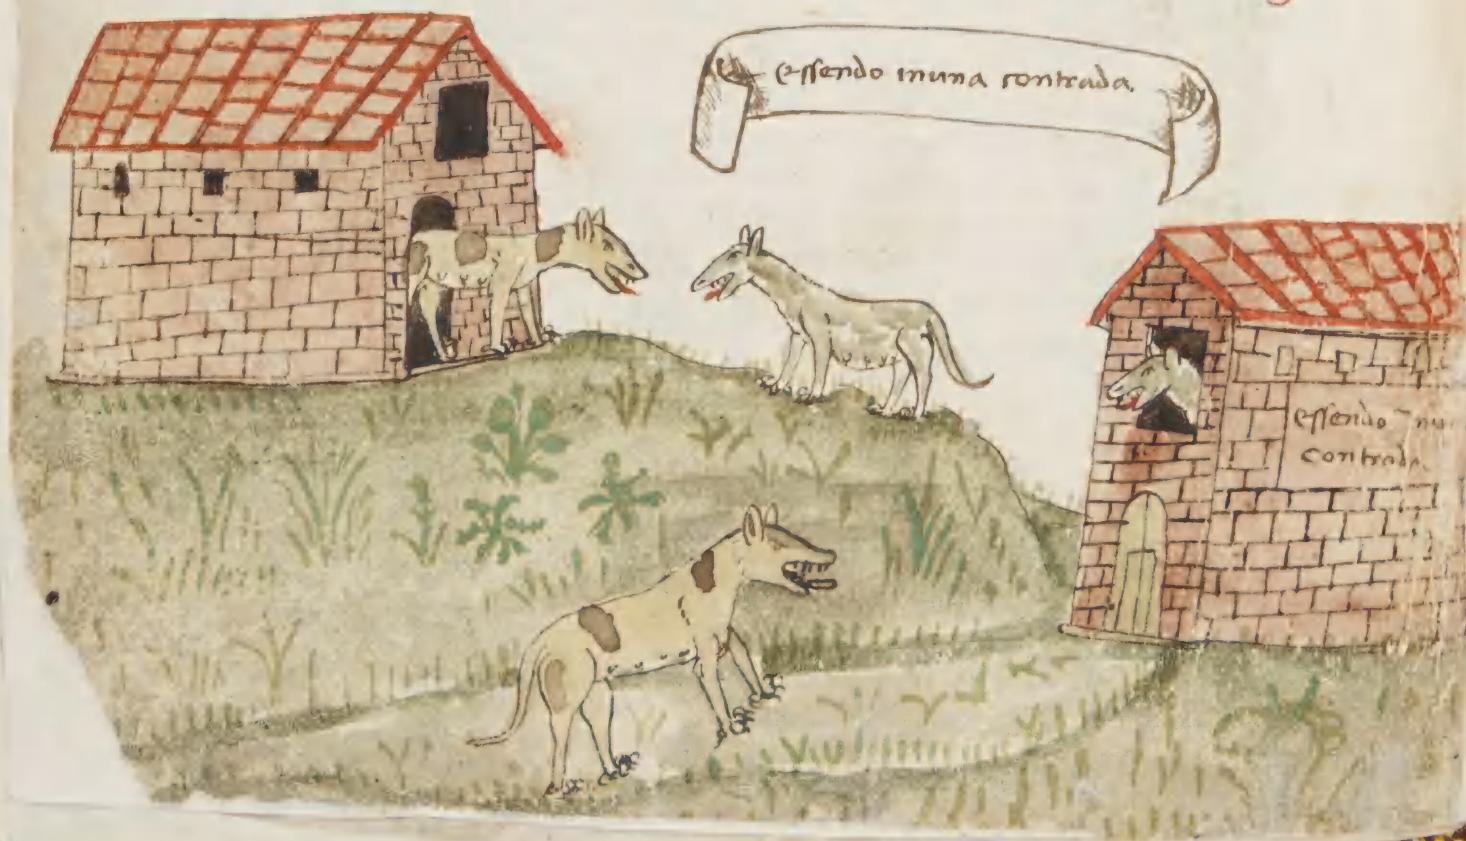 essendo inuna contrada.
essendo
contrada.